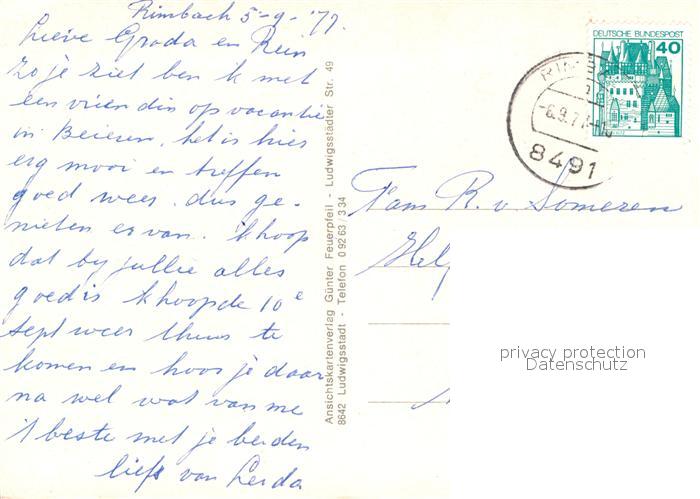 Rimbach 5-9-'77.
Lieve Groda en Rein
zo je ziet ben ik met
een vriendin op vacantie
in Beieren, het is hier
erg mooi en treffen
goed weer. dus ge-
nieten ervan. ik hoop
dat by jullie alles
goed is k hoop de 10e
sept weer thuis te
komen en hoor je daar
na wel wat van me
't beste met je beiden
liefs van Gerda
Ansichtskartenverlag Günter Feuerpfeil - Ludwigsstädter Str. 49
8642 Ludwigsstadt - Telefon 09263/334
DEUTSCHE BUNDESPOST
40
8491
Fam R. v. Someren
privacy protection
Datenschutz